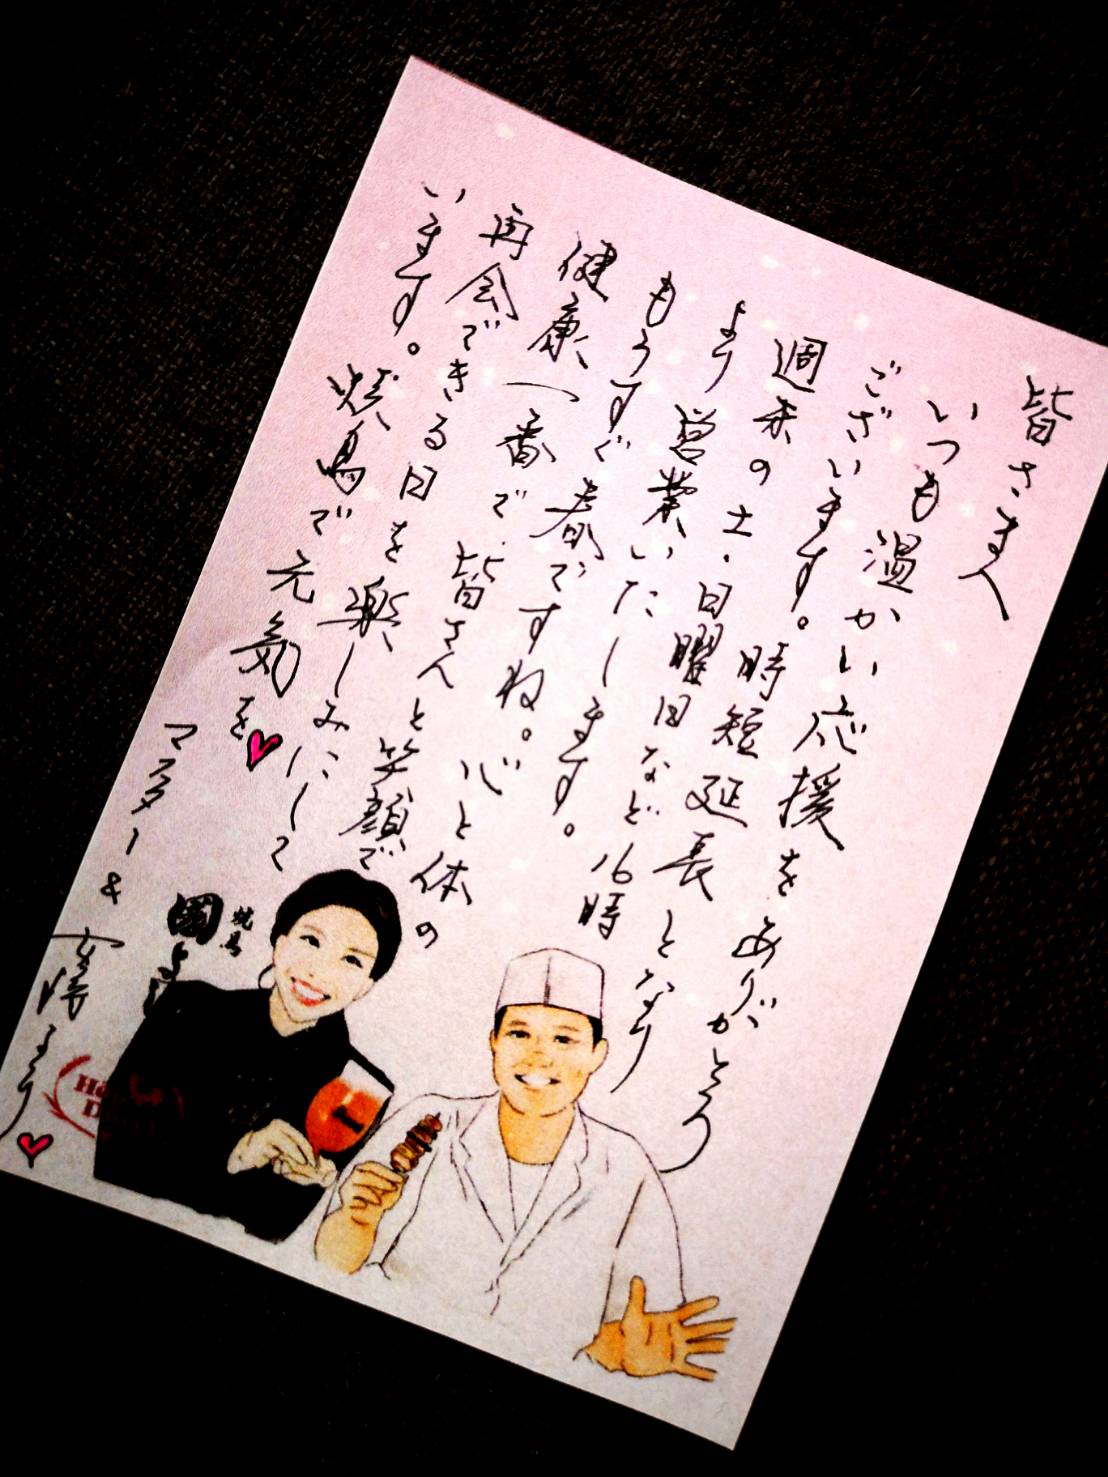 皆さまへ
いつも温かい応援をありがとう
ございます。時短延長となり
週末の土・日曜日など16時
より営業いたします。
もうすぐ春ですね。心と体の
健康一番で皆さんと笑顔で
再会できる日を楽しみにして
います。焼鳥で元気を
マスター&女将より
焼鳥
國よし